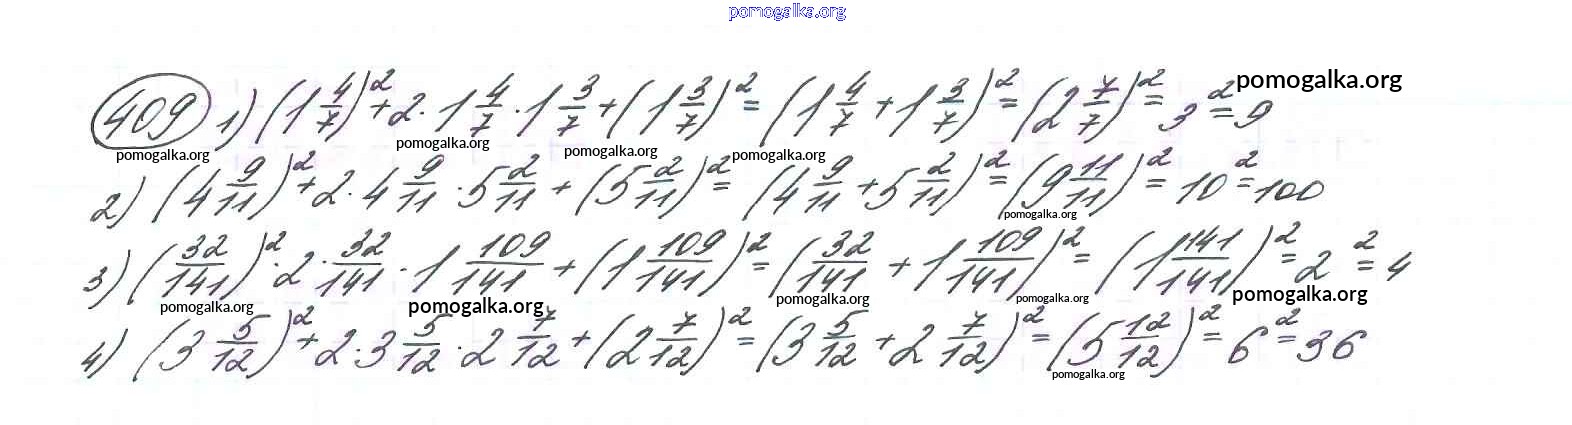 pomogalka.org
409 1) (1 4/7)² + 2 · 1 4/7 · 1 3/7 + (1 3/7)² = (1 4/7 + 1 3/7)² = (2 7/7)² = 3² = 9 pomogalka.org
pomogalka.org pomogalka.org pomogalka.org pomogalka.org
2) (4 9/11)² + 2 · 4 9/11 · 5 2/11 + (5 2/11)² = (4 9/11 + 5 2/11)² = (9 11/11)² = 10² = 100
pomogalka.org
3) (32/141)² · 2 · 32/141 · 1 109/141 + (1 109/141)² = (32/141 + 1 109/141)² = (1 141/141)² = 2² = 4
pomogalka.org pomogalka.org pomogalka.org pomogalka.org pomogalka.org
4) (3 5/12)² + 2 · 3 5/12 · 2 7/12 + (2 7/12)² = (3 5/12 + 2 7/12)² = (5 12/12)² = 6² = 36
pomogalka.org